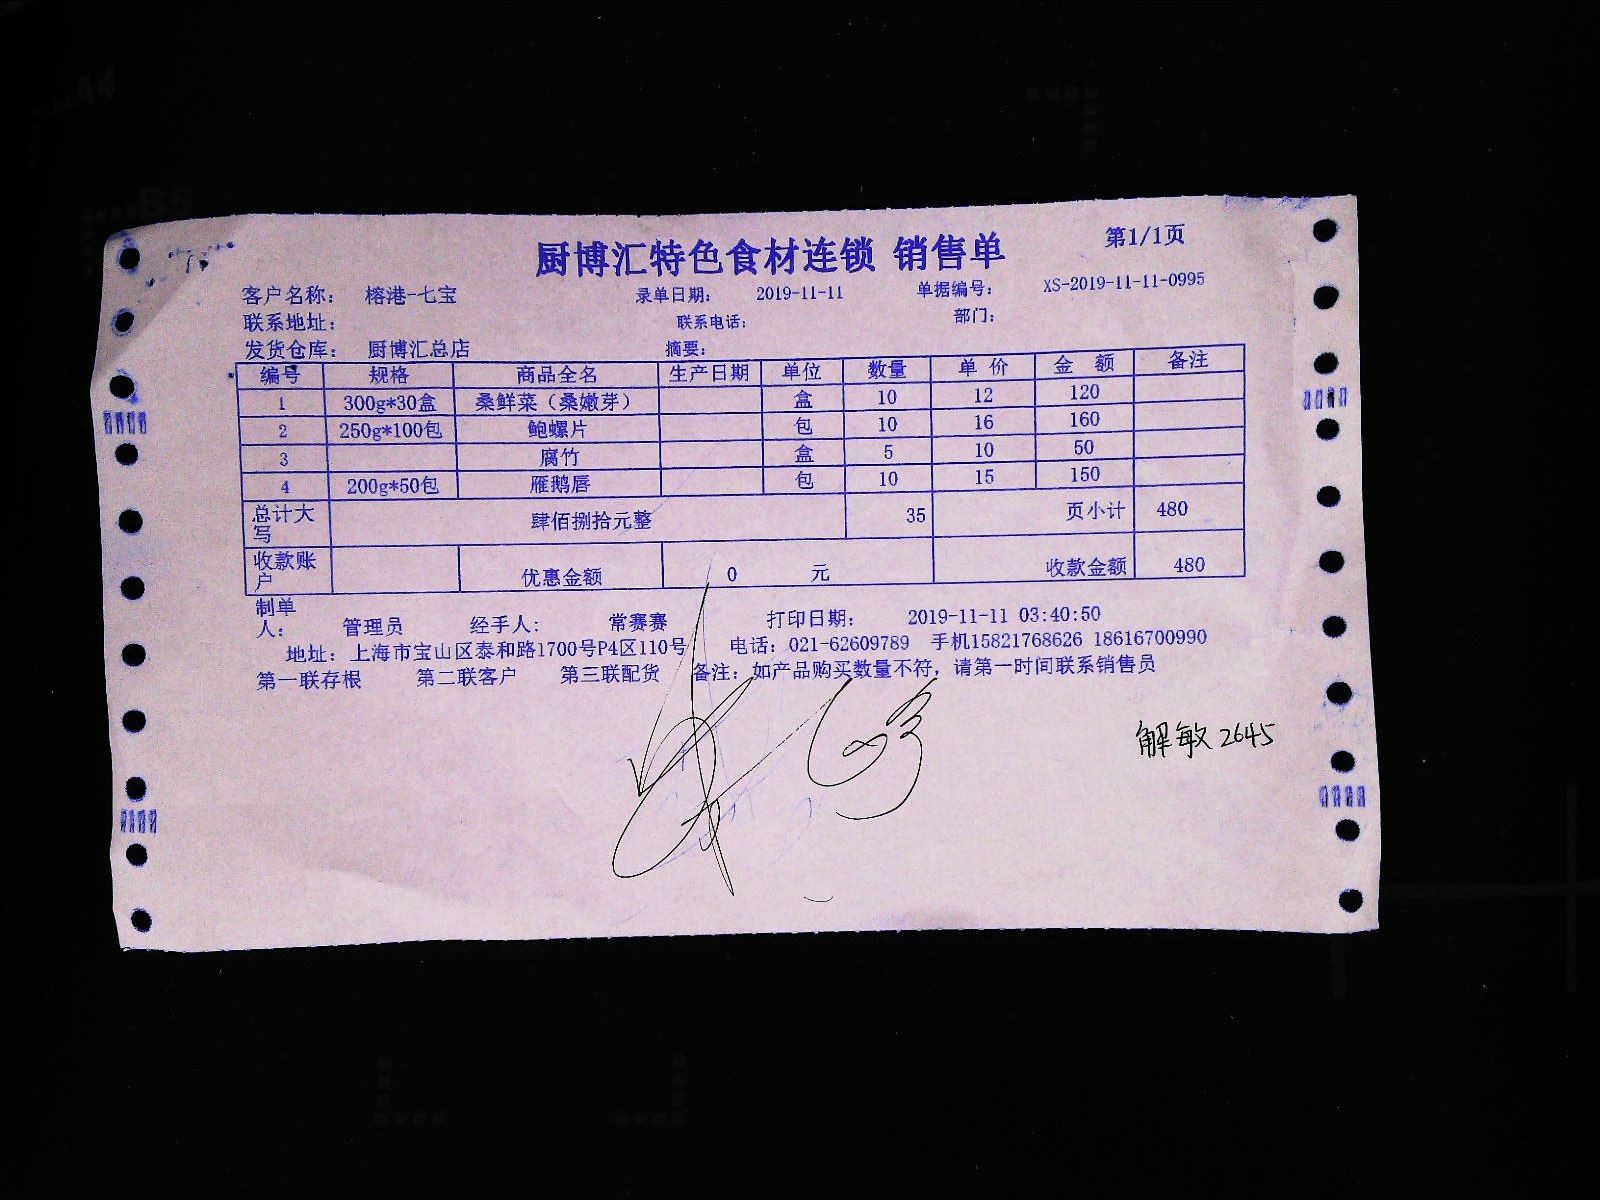 厨博汇特色食材连锁 销售单 第1/1页
客户名称： 榕港-七宝 录单日期： 2019-11-11 单据编号： XS-2019-11-11-0995
联系地址： 联系电话： 部门：
发货仓库： 厨博汇总店 摘要：
编号 规格 商品全名 生产日期 单位 数量 单 价 金 额 备注
1 300g*30盒 桑鲜菜（桑嫩芽） 盒 10 12 120
2 250g*100包 鲍螺片 包 10 16 160
3 腐竹 盒 5 10 50
4 200g*50包 雁鹅唇 包 10 15 150
总计大写 肆佰捌拾元整 35 页小计 480
收款账户 优惠金额 0 元 收款金额 480
制单人： 管理员 经手人： 常赛赛 打印日期： 2019-11-11 03:40:50
地址：上海市宝山区泰和路1700号P4区110号 电话：021-62609789 手机15821768626 18616700990
第一联存根 第二联客户 第三联配货 备注：如产品购买数量不符，请第一时间联系销售员
解敏 2645